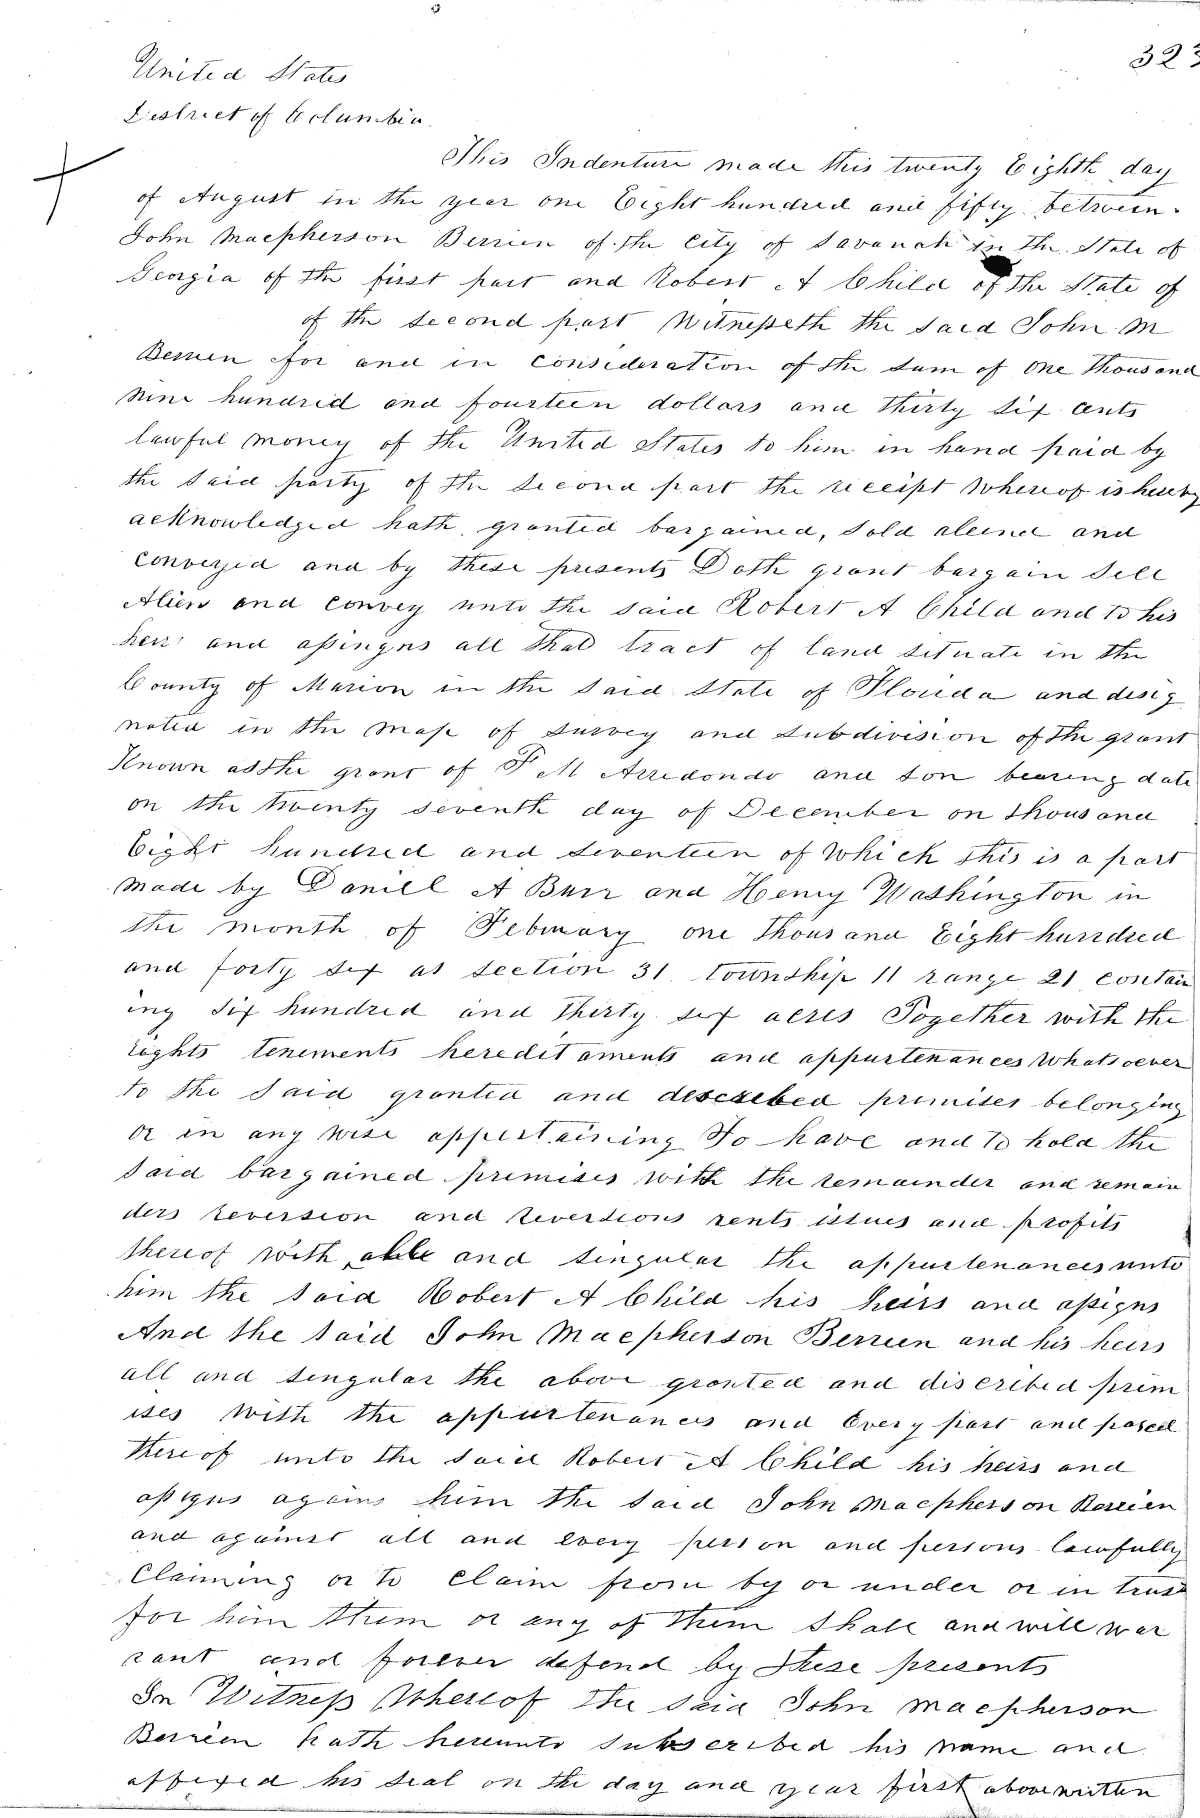 323
United States
District of Columbia.
This Indenture made this twenty Eighth day
of August in the year one Eight hundred and fifty between.
John Macpherson Berrien of the City of Savanah in the State of
Georgia of the first part and Robert A Child of the State of
of the second part Witnesseth the said John M
Berrien for and in Consideration of the sum of one thousand
nine hundred and fourteen dollars and thirty six cents
lawful money of the United States to him in hand paid by
the said party of the second part the receipt whereof is hereby
acknowledged hath granted bargained, sold aliend and
conveyed and by these presents Doth grant bargain Sell
Alien and Convey unto the said Robert A Child and to his
heirs and assingns all that tract of land situate in the
County of Marion in the said State of Florida and desig
nated in the map of survey and subdivision of the grant
Known as the grant of F M Arredondo and son bearing date
on the twenty seventh day of December on thousand
Eight hundred and seventeen of which this is a part
made by Daniel A Burr and Henry Washington in
the month of February one thousand Eight hundred
and forty six as section 31 township 11 range 21 contain
ing six hundred and thirty six acres Together with the
rights tenements hereditaments and appurtenances whatsoever
to the said granted and described premises belonging
or in any wise appertaining To have and to hold the
said bargained premises with the remainder and remain
ders reversion and reversions rents issues and profits
thereof with all and singular the appurtenances unto
him the said Robert A Child his heirs and assigns
And the said John Macpherson Berrien and his heirs
all and singular the above granted and discribed prem
ises with the appurtenances and Every part and parcel
thereof unto the said Robert A Child his heirs and
assigns agains him the said John Macpherson Berrien
and against all and every person and persons lawfully
Claiming or to claim from by or under or in trust
for him them or any of them shall and will war
rant and forever defend by these presents
In Witness Whereof the said John Macpherson
Berrien hath hereunto subscribed his name and
affixed his seal on the day and year first above written